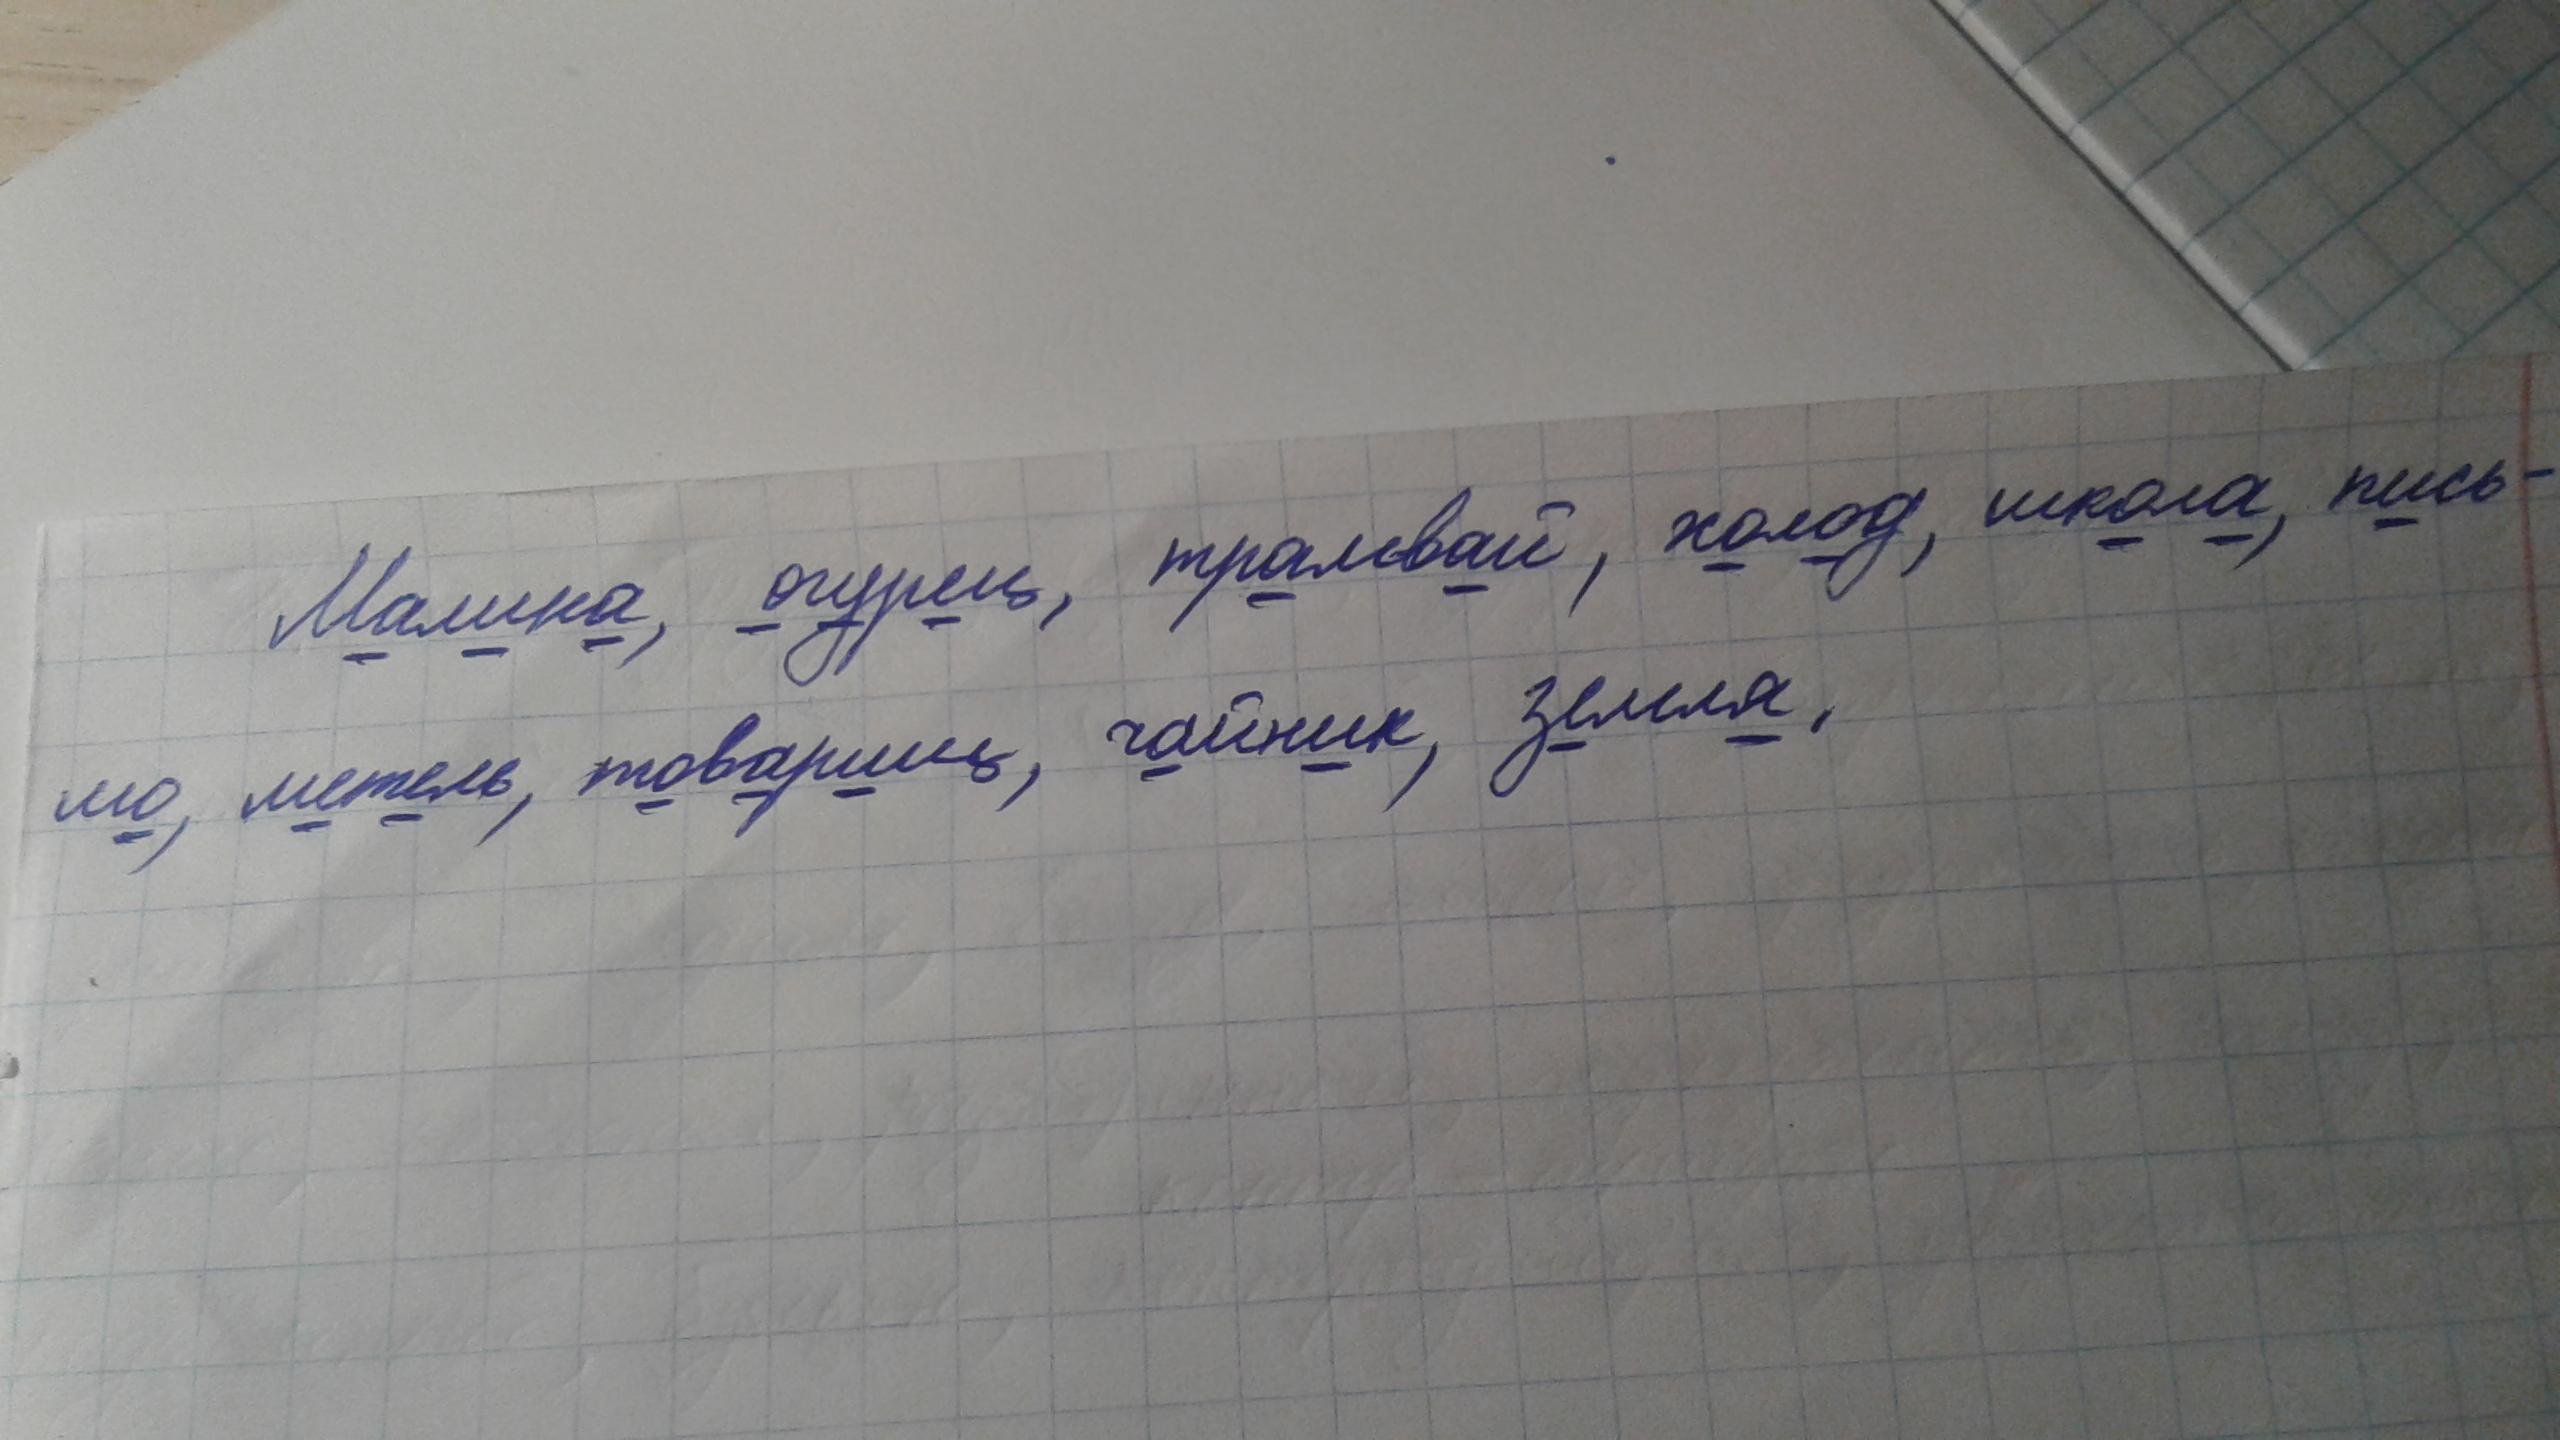 Малина, огурец, трамвай, холод, школа, пись-
мо, метель, товарищ, чайник, земля.